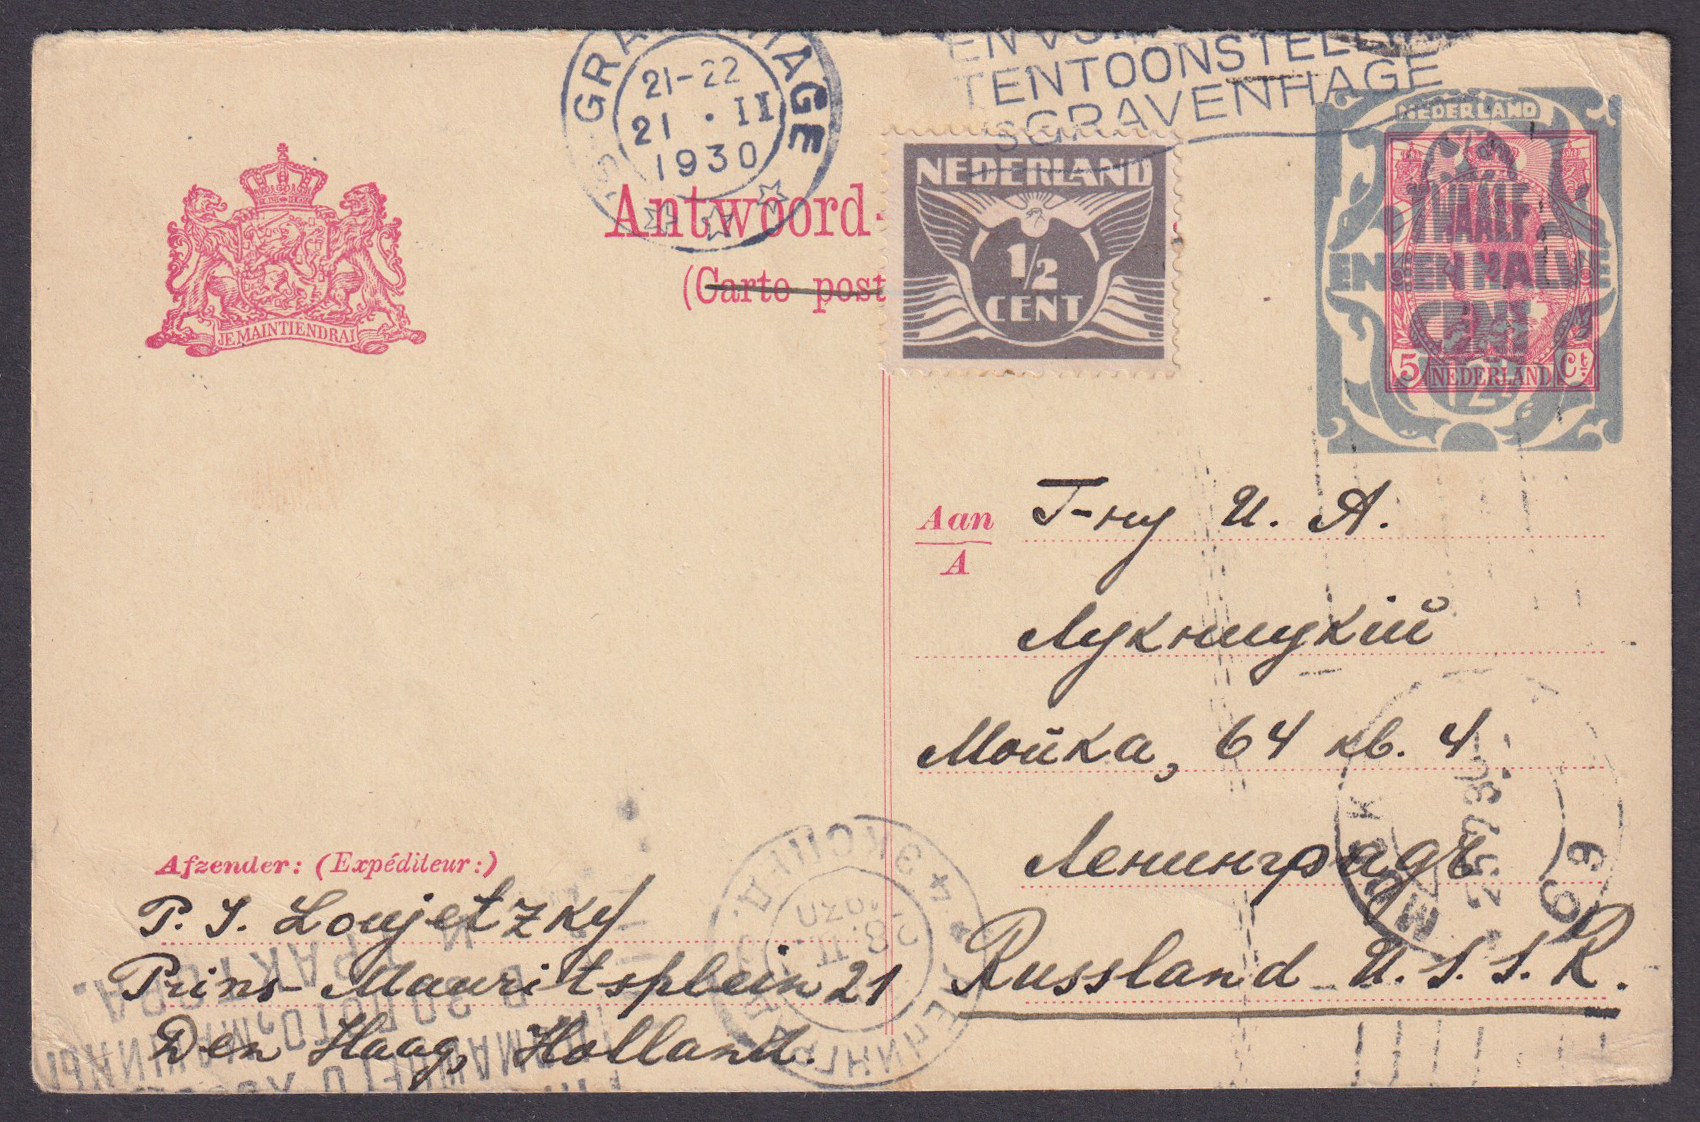 'S-GRAVENHAGE
21-22
21 · II
1930
TENTOONSTELL
SGRAVENHAGE
NEDERLAND
TWAALF
EN EEN HALVE
CENT
12½
5 Ct.
NEDERLAND
NEDERLAND
1/2
CENT
Antwoord-
(Carte post
JE MAINTIENDRAI
Aan
A
Г-ну И. А.
Лукницкій
Мойка, 64 кв. 4
Ленинградъ
Russland U.S.S.R.
Afzender: (Expéditeur:)
P. J. Loujetzky
Prins Mauritsplein 21
Den Haag, Holland.
ЛЕНИНГРАД
ЭКСПЕД.
28.II
1930